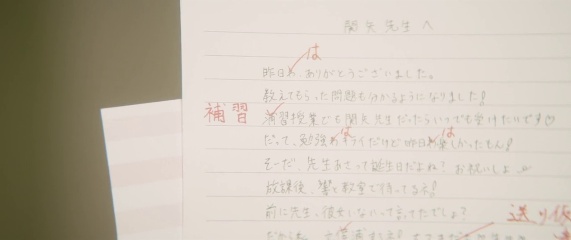 関矢先生へ
は
昨日わ、ありがとうございました。
教えてもらった問題も分かるようになりました!
補習
授業でも関矢先生だったらいつでも受けたいです♡
は
は
だって、勉強わキライだけど昨日わ楽しかったもん!
そーだ、先生あさって誕生日だよね？お祝いしよ
放課後、響と教室で待ってるネ!
前に先生、彼女いないって言ってたでしょ？
送り仮